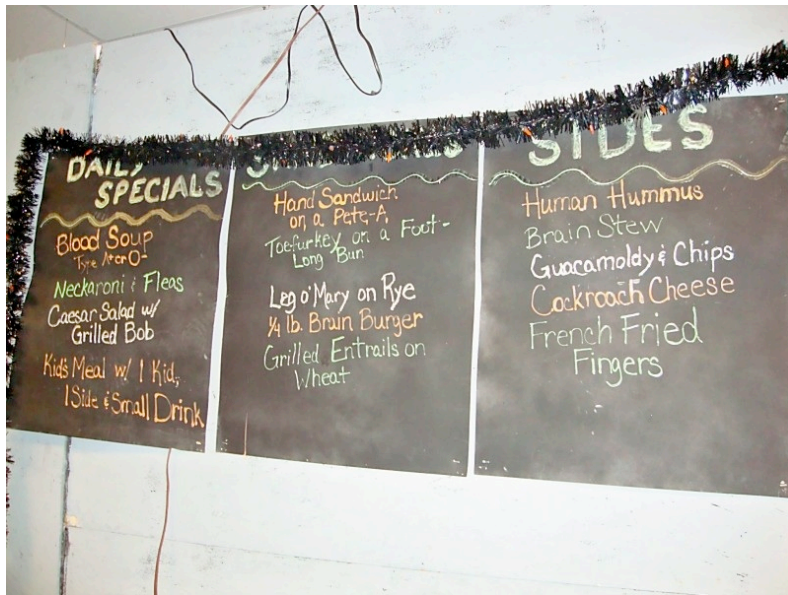 DAILY
SPECIALS
Blood Soup
Type A+ or O-
Neckaroni & Fleas
Caesar Salad w/
Grilled Bob
Kid's Meal w/ 1 Kid,
1 Side & Small Drink
Hand Sandwich
on a Pete-A
Toe-furkey on a Foot-
Long Bun
Leg o' Mary on Rye
1/4 lb. Brain Burger
Grilled Entrails on
Wheat
SIDES
Human Hummus
Brain Stew
Guacamoldy & Chips
Cockroach Cheese
French Fried
Fingers